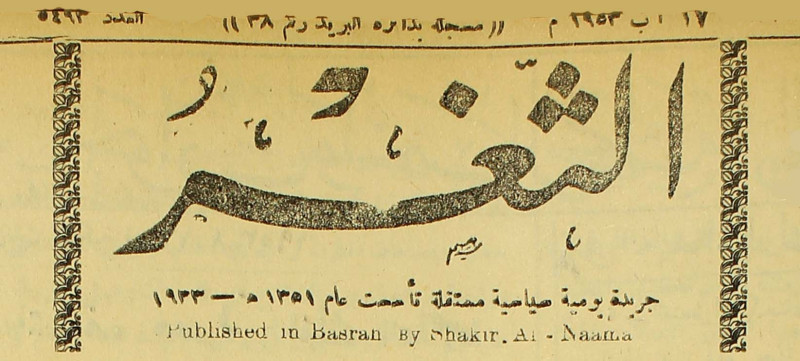 ١٧ اب ١٩٥٣ م ((مسجلة بدائرة البريد رقم ٣٨)) العدد ٥٤٩٣
الثغر
جريدة يومية سياسية مستقلة تأسست عام ١٣٥١ ه — ١٩٣٣
Published in Basrah By Shakir. Al - Naama